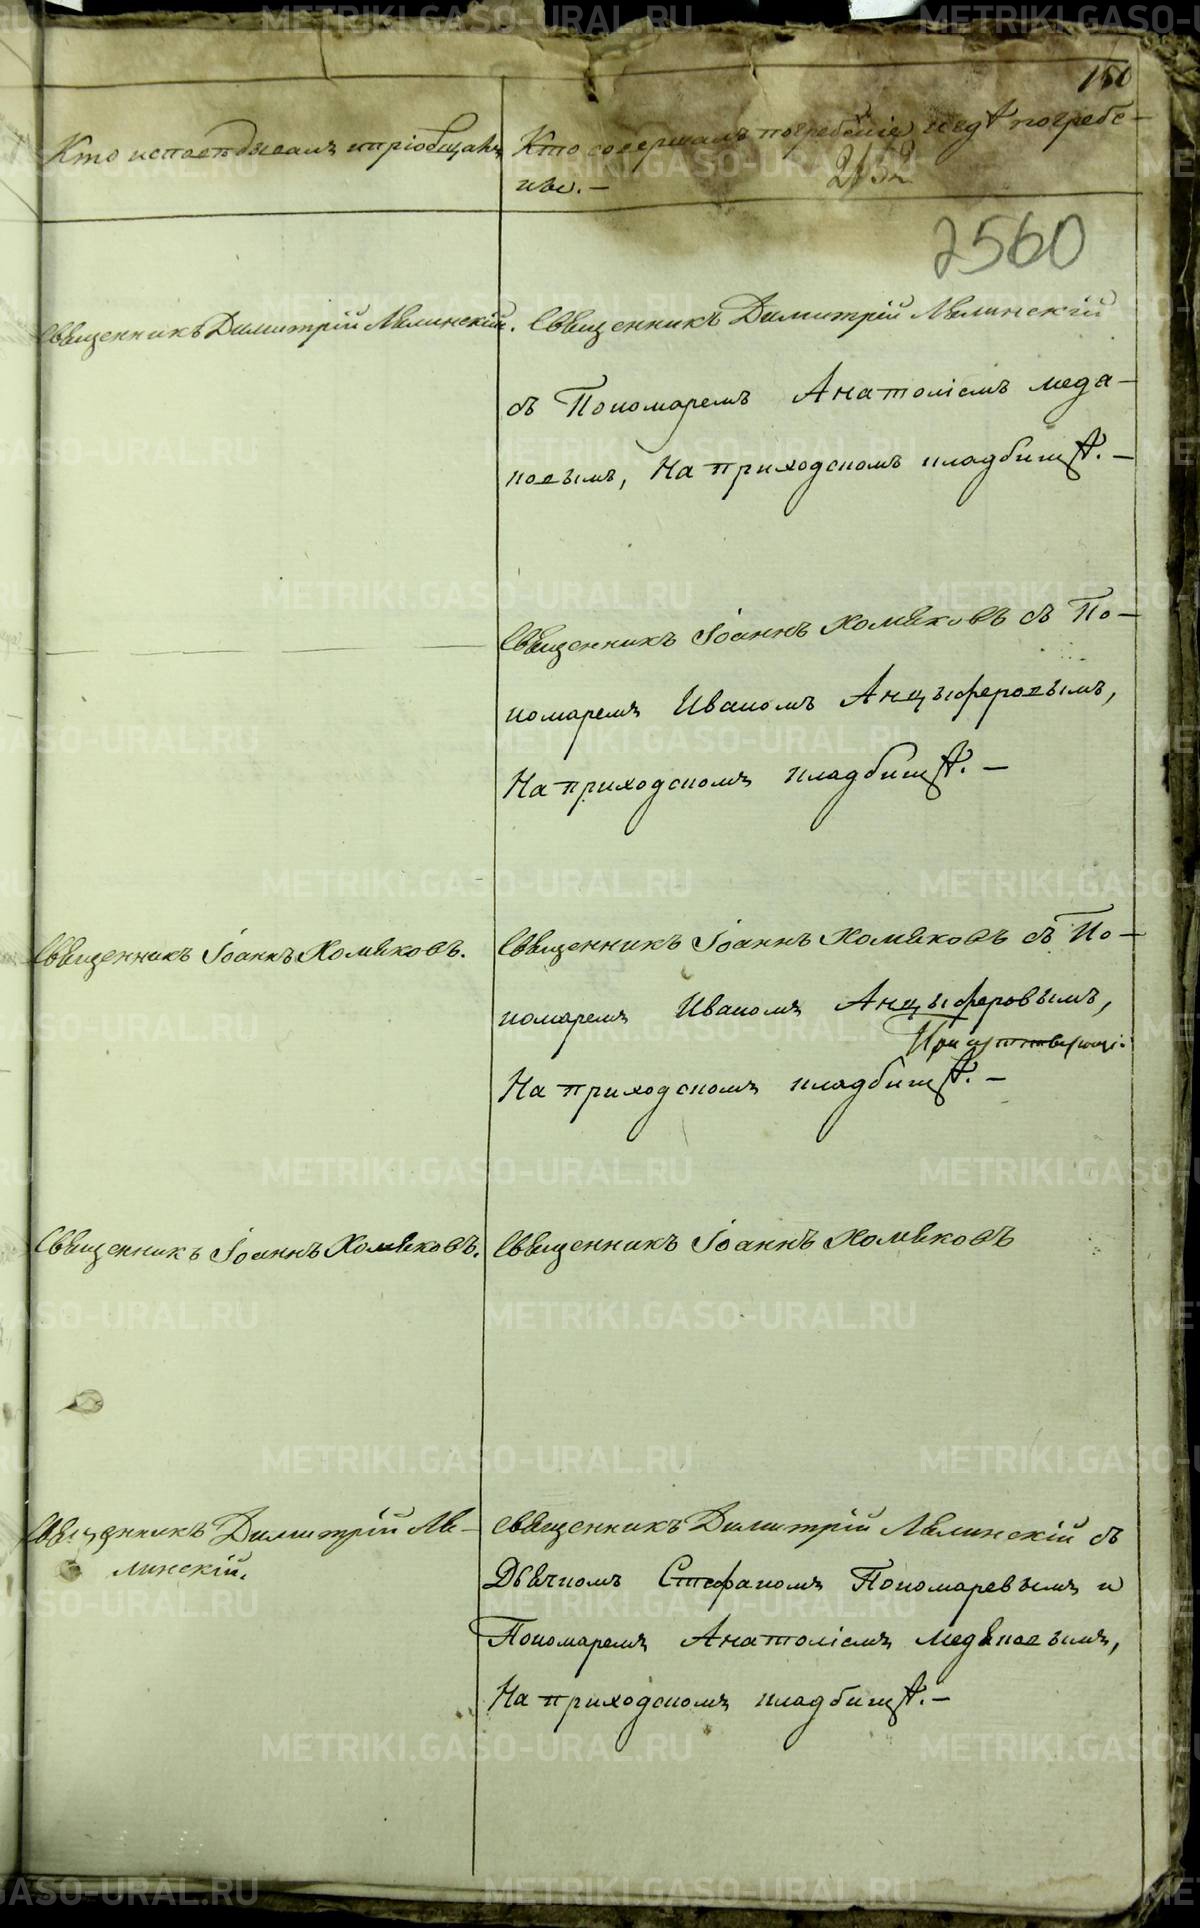 150
Кто исповѣдывалъ и пріобщалъ
Кто совершалъ погребеніе и гдѣ погребе-
ны. -
2132
2560
Священникъ Димитрій Мялинскій.
Священникъ Димитрій Мялинскій
съ Пономаремъ Анатоліемъ
На приходскомъ кладбищѣ. -
Священникъ Іоаннъ Хомяковъ съ По-
номаремъ Иваномъ Анцыферовымъ,
На приходскомъ кладбищѣ. -
Священникъ Іоаннъ Хомяковъ.
Священникъ Іоаннъ Хомяковъ съ По-
номаремъ Иваномъ Анцыферовымъ,
На приходскомъ кладбищѣ. -
Священникъ Іоаннъ Хомяковъ.
Священникъ Іоаннъ Хомяковъ
Священникъ Димитрій Мя-
линскій.
Священникъ Димитрій Мялинскій съ
Дьячкомъ Стефаномъ Пономаревымъ и
Пономаремъ Анатоліемъ
На приходскомъ кладбищѣ. -
METRIKI.GASO-URAL.RU